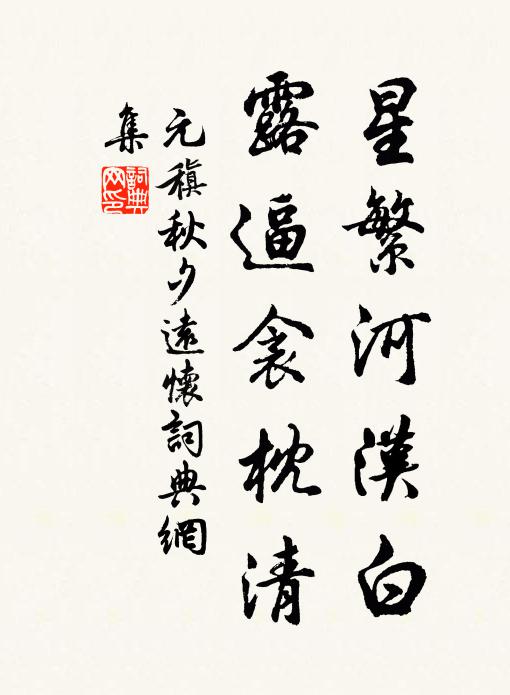 星繁河漢白
露逼衾枕清
元稹秋夕遠懷詞典網
集
詞典
网印